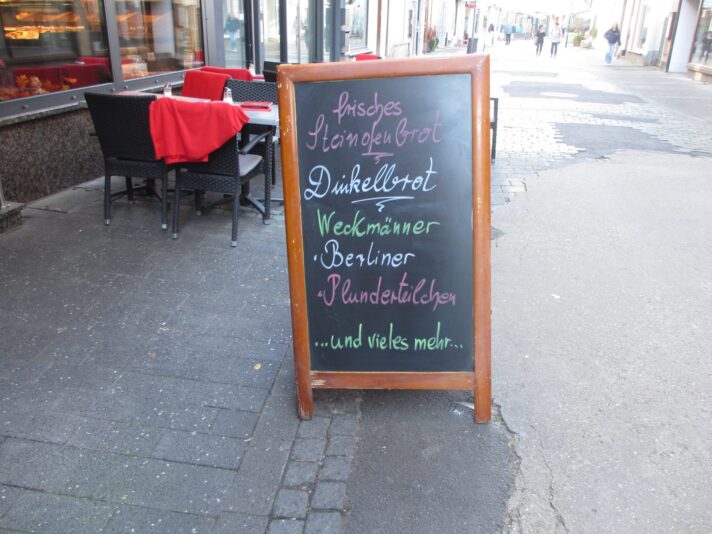 frisches
Steinofenbrot
Dinkelbrot
Weckmänner
• Berliner
• Plunderteilchen
...und vieles mehr...